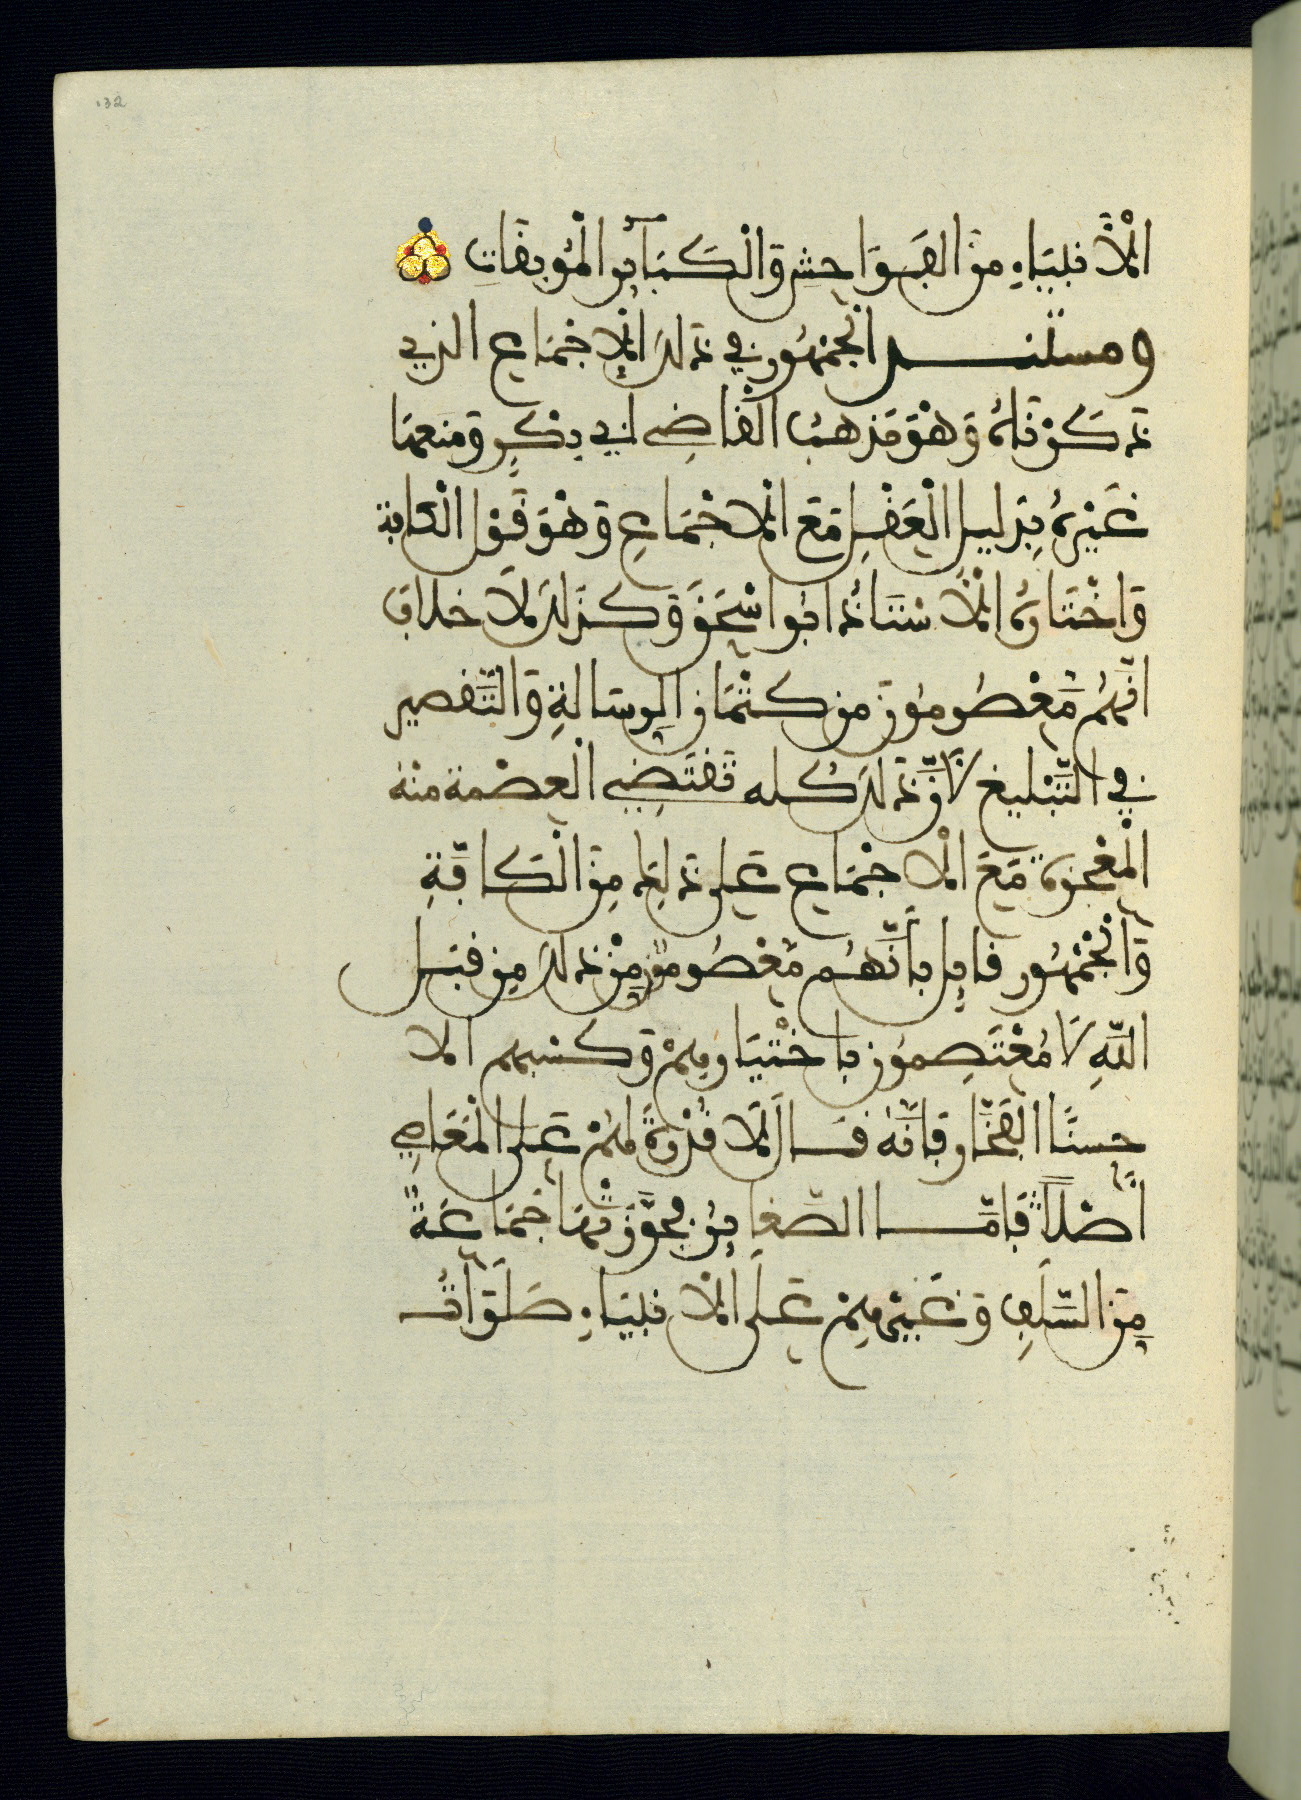 132
الْأَنبِيَاءِ مِنَ الفَوَاحِشِ وَالْكَبَآئِرِ الْمُوبِقَاتِ
ومستند الْجُمْهُورِ فِي ذَلِكَ الْإِجْمَاعُ الذِي
ذَكَرْنَاهُ وَهْوَ مَذْهَبُ الْقَاضِي أَبِي بَكْرٍ وَمَنَعَهَا
غَيْرُهُ بِدَلِيلِ الْعَقْلِ مَعَ الْإِجْمَاعِ وَهْوَ قَوْلُ الْكَافَّةِ
وَاخْتَارَهُ الْأُسْتَاذُ أَبُو إِسْحَقَ وَكَذَلِكَ لَا خِلَافَ
أَنَّهُمْ مَّعْصُومُونَ مِن كِتْمَانِ الرِسَالَةِ وَالتَّقْصِيرِ
فِي التَّبْلِيغِ لَأنَّ ذَلِكَ كُلَّه تَقْتَضِي الْعِصْمَةَ مِنْهُ
الْمُعْجِزَةُ مَعَ الْإِجْمَاعِ عَلَى ذَلِكَ مِنَ الْكَافَّةِ
وَالْجُمْهُورُ قَائِلٌ بِأَنَّهُم مَّعْصُومُونَ مِنْ ذَلِكَ مِن قِبَلِ
اللَّهِ لَا مُعْتَصِمُونَ بِاخْتِيَارِهِمْ وَكَسْبِهِمْ الا
حسنًا النَّجَّار فَإِنَّهُ قَالَ لَا قُدْرَةَ لَهُمْ عَلَى الْمَعَاصِي
أَصْلًا فَأَمَّا الصَّغَايِرُ فجَوَّزَتْهَا جَمَاعَةٌ
مِّنَ السَّلَفِ وَغَيْرِهِمْ عَلَى الْأَنبِيَاءِ صَلَوَاتُ